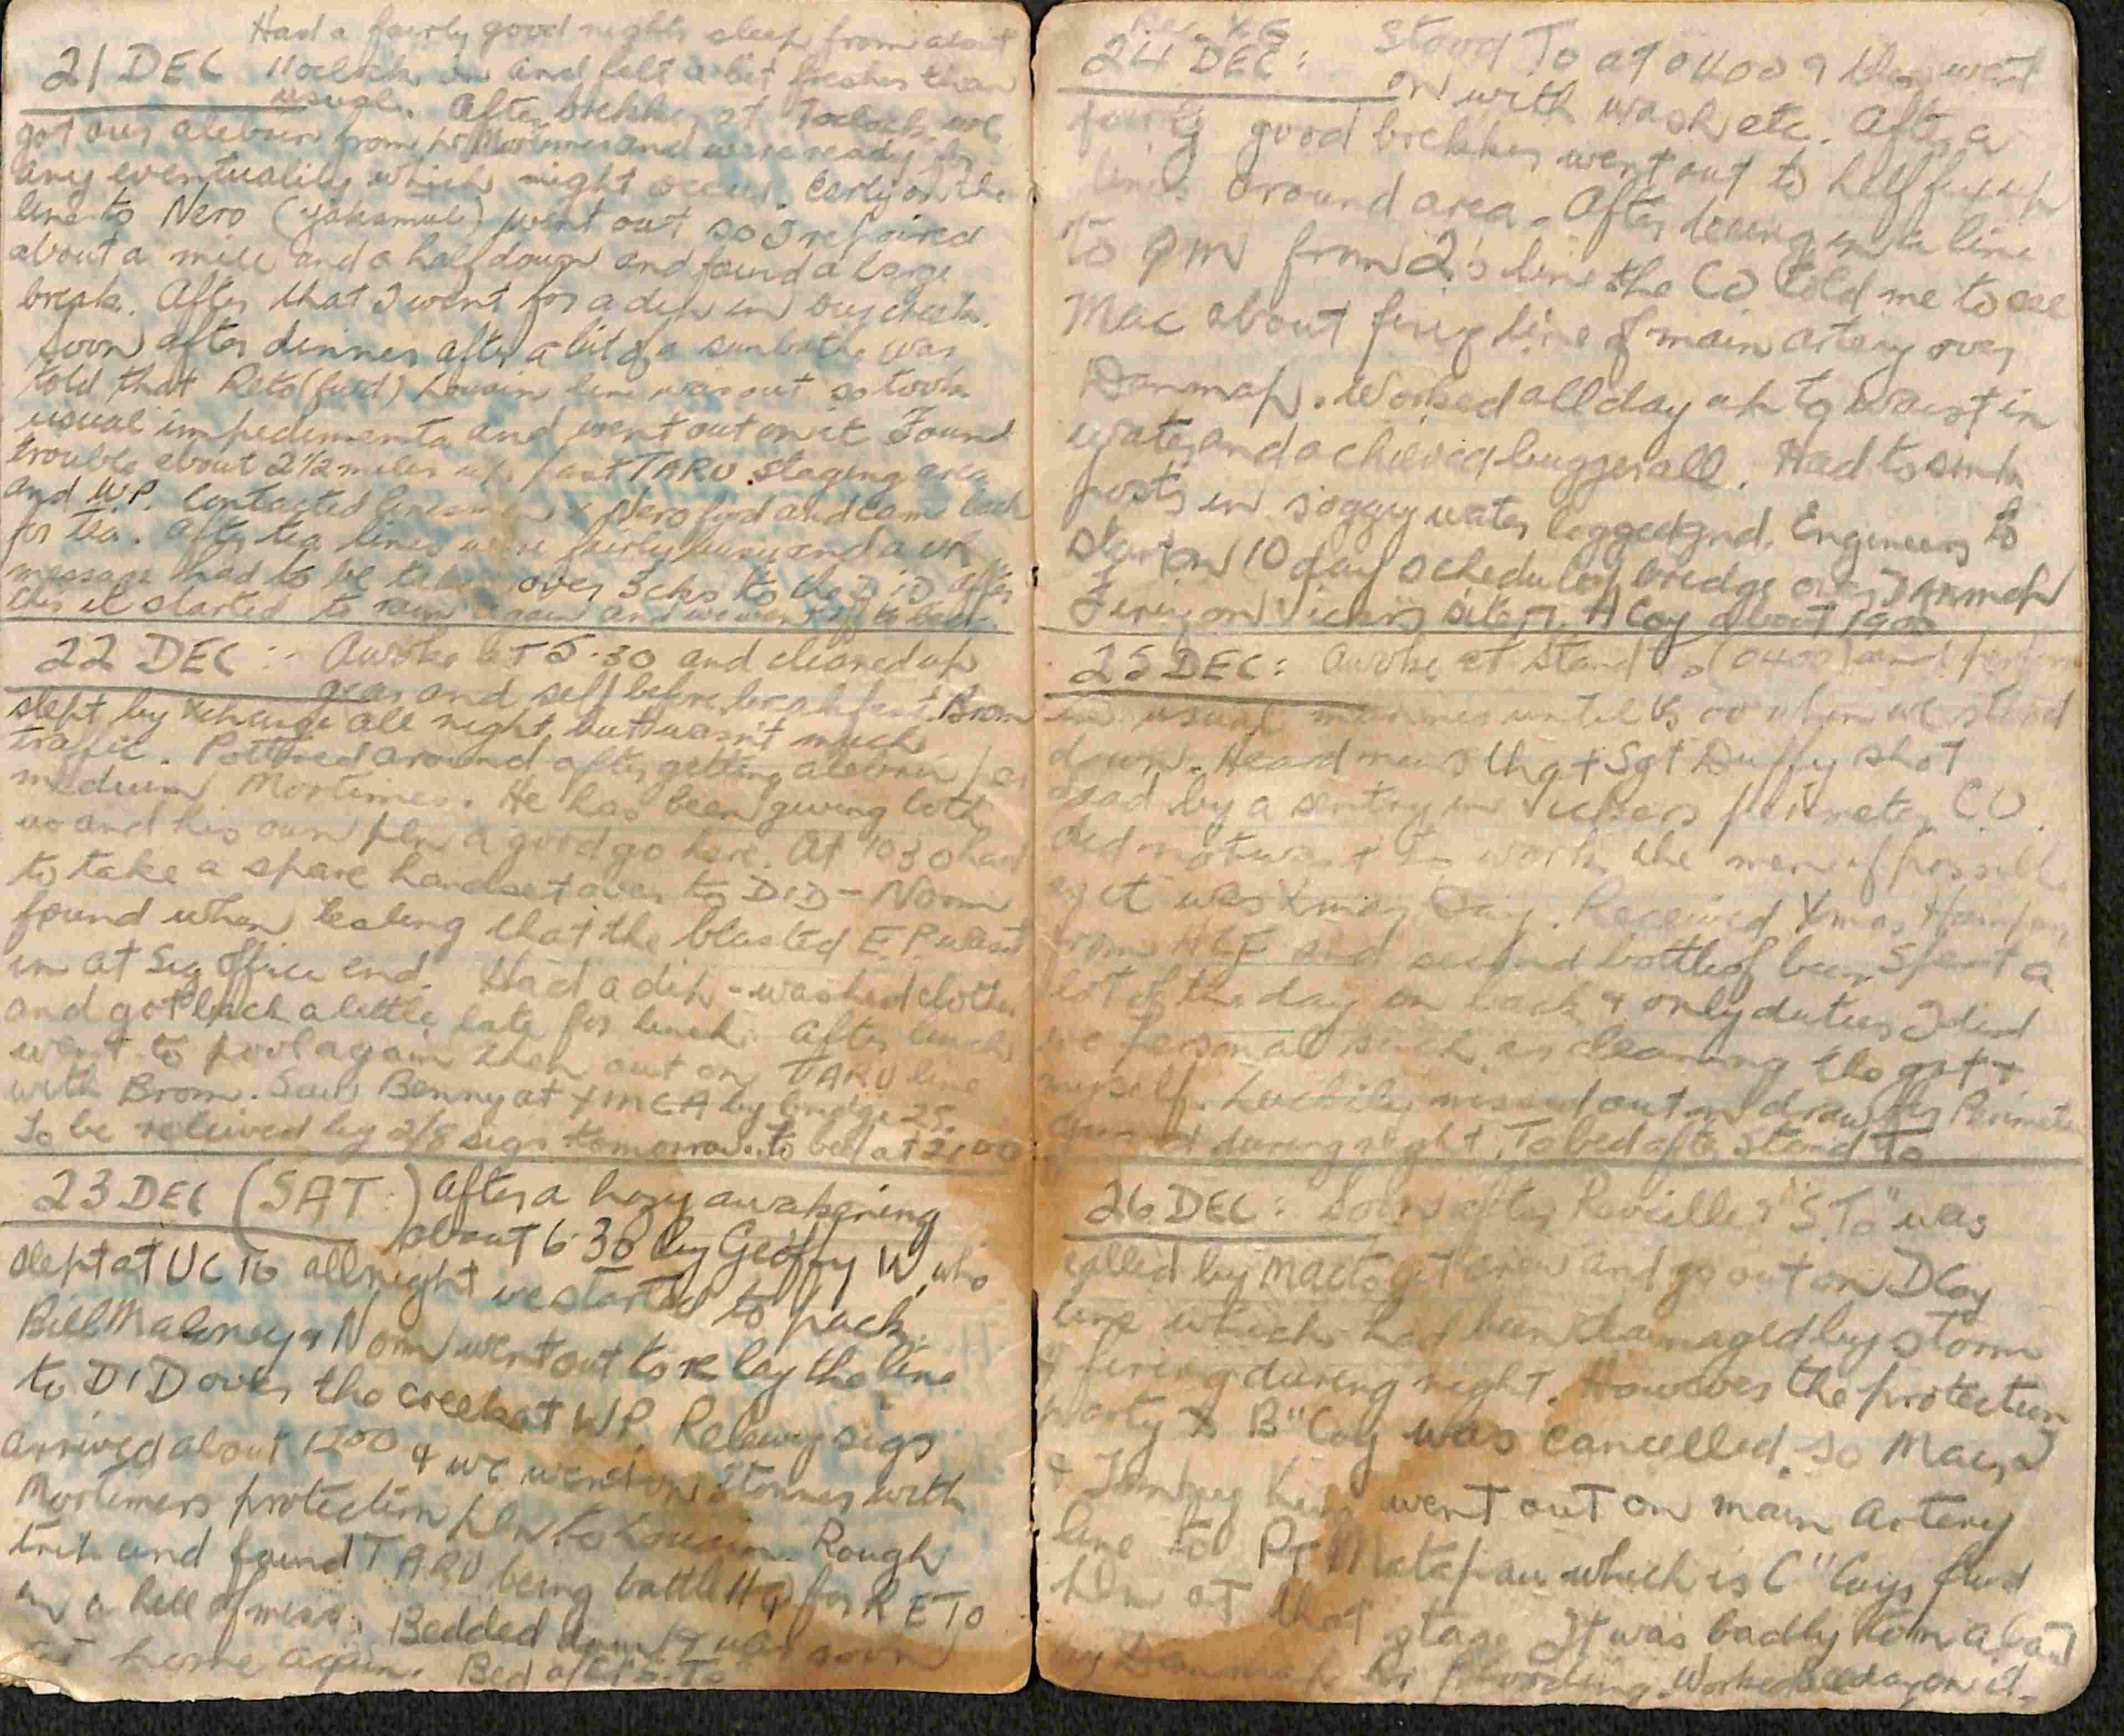 21 DEC Had a fairly good nights sleep from about
11oclock on and felt a bit fresher than
usual. After brekker at 7oclock we
got our atebrin from Lt Mortimer and were ready for
any eventuality which might occur. Early on the
line to Nero (Yakamul) went out so I repaired
about a mile and a half down and found a large
break. After that I went for a dip in our creek.
Soon after dinner after a bit of a sunbathe was
told that Reto (fwd) Louain line was out so took
usual impedimenta and went out on it Found
trouble about 2½ miles up past TARU staging area
and W.P. Contacted linesmen x Nero fwd and came back
for tea. After tea lines were fairly busy and a
message had to be taken over 3cks to the DID after
this it started to rain again and we went off to bed.
22 DEC :- Awoke at 5.30 and cleaned up
gear and self before breakfast. Brom
slept by xchange all night, but wasn't much
traffic. Pottered around after getting atebrin per
medium Mortimer. He has been giving both
us and his own pln a good go here. At 1030 had
to take a spare handset over to DID - Norm
found when testing that the blasted E.P. wasnt
in at Sig Office end. Had a dip - washed clothes
and got back a little late for lunch. After lunch
went to pool again then out on TARU line
with Brom. Saw Benny at YMCA by bridge 25.
To be relieved by 2/8 sigs tomorrow. to bed at 2100
23 DEC (SAT:) After a hazy awakening
about 6.30 by Geoffry W, who
slept at UC 10 all night we started to pack.
Bill Maloney & Norm went out to re lay the line
to DID over the creek at WP. Relieving sigs
arrived about 1200 & we went on Stormer with
Mortimers protection pln. to Louain. Rough
trip and found TARU being battle HQ for RETO
in a hell of mess. Bedded down & was soon
at home again. Bed after S. To
24 DEC: Stood To at 0400 & then went
on with wash etc. After a
fairly good brekker went out to help fix up
lines around area. After teeing in a line
to QM from 2's line the CO told me to see
Mac about fixing line of main artery over
Danmap. Worked all day up to waist in
water and achieved buggerall. Had to sink
posts in soggy water logged gnd. Engineers to
start on 10 day schedule of bridge over DANMAP
Firing on Vickers site A Coy about 1900
25 DEC: Awoke at Stand To (0400) and
in usual manner until 0500 when we stood
down. Heard news that Sgt Duffy shot
dead by a sentry in Vickers perimeter. C.O.
did not want to work the men if possible
as it was Xmas Day. Received Xmas Hamper
from ACF and second bottle of beer. Spent a
lot of the day on back & only duties I did
were personal such as cleaning the gat &
myself. Luckily missed out in draw for Perimeter
guard during night. To bed after Stand To
26 DEC: Soon after Reveille & "S. To" was
called by Mac to get crew and go out on D Coy
line which had been damaged by storm
& firing during night. However the protection
party x B" Coy was cancelled. so Mac, I
& Tombuy King went out on main artery
line to PT Matapau which is C" Coys fwd
pln at that stage. It was badly torn about
by Danmap flooding. Worked all day on it.